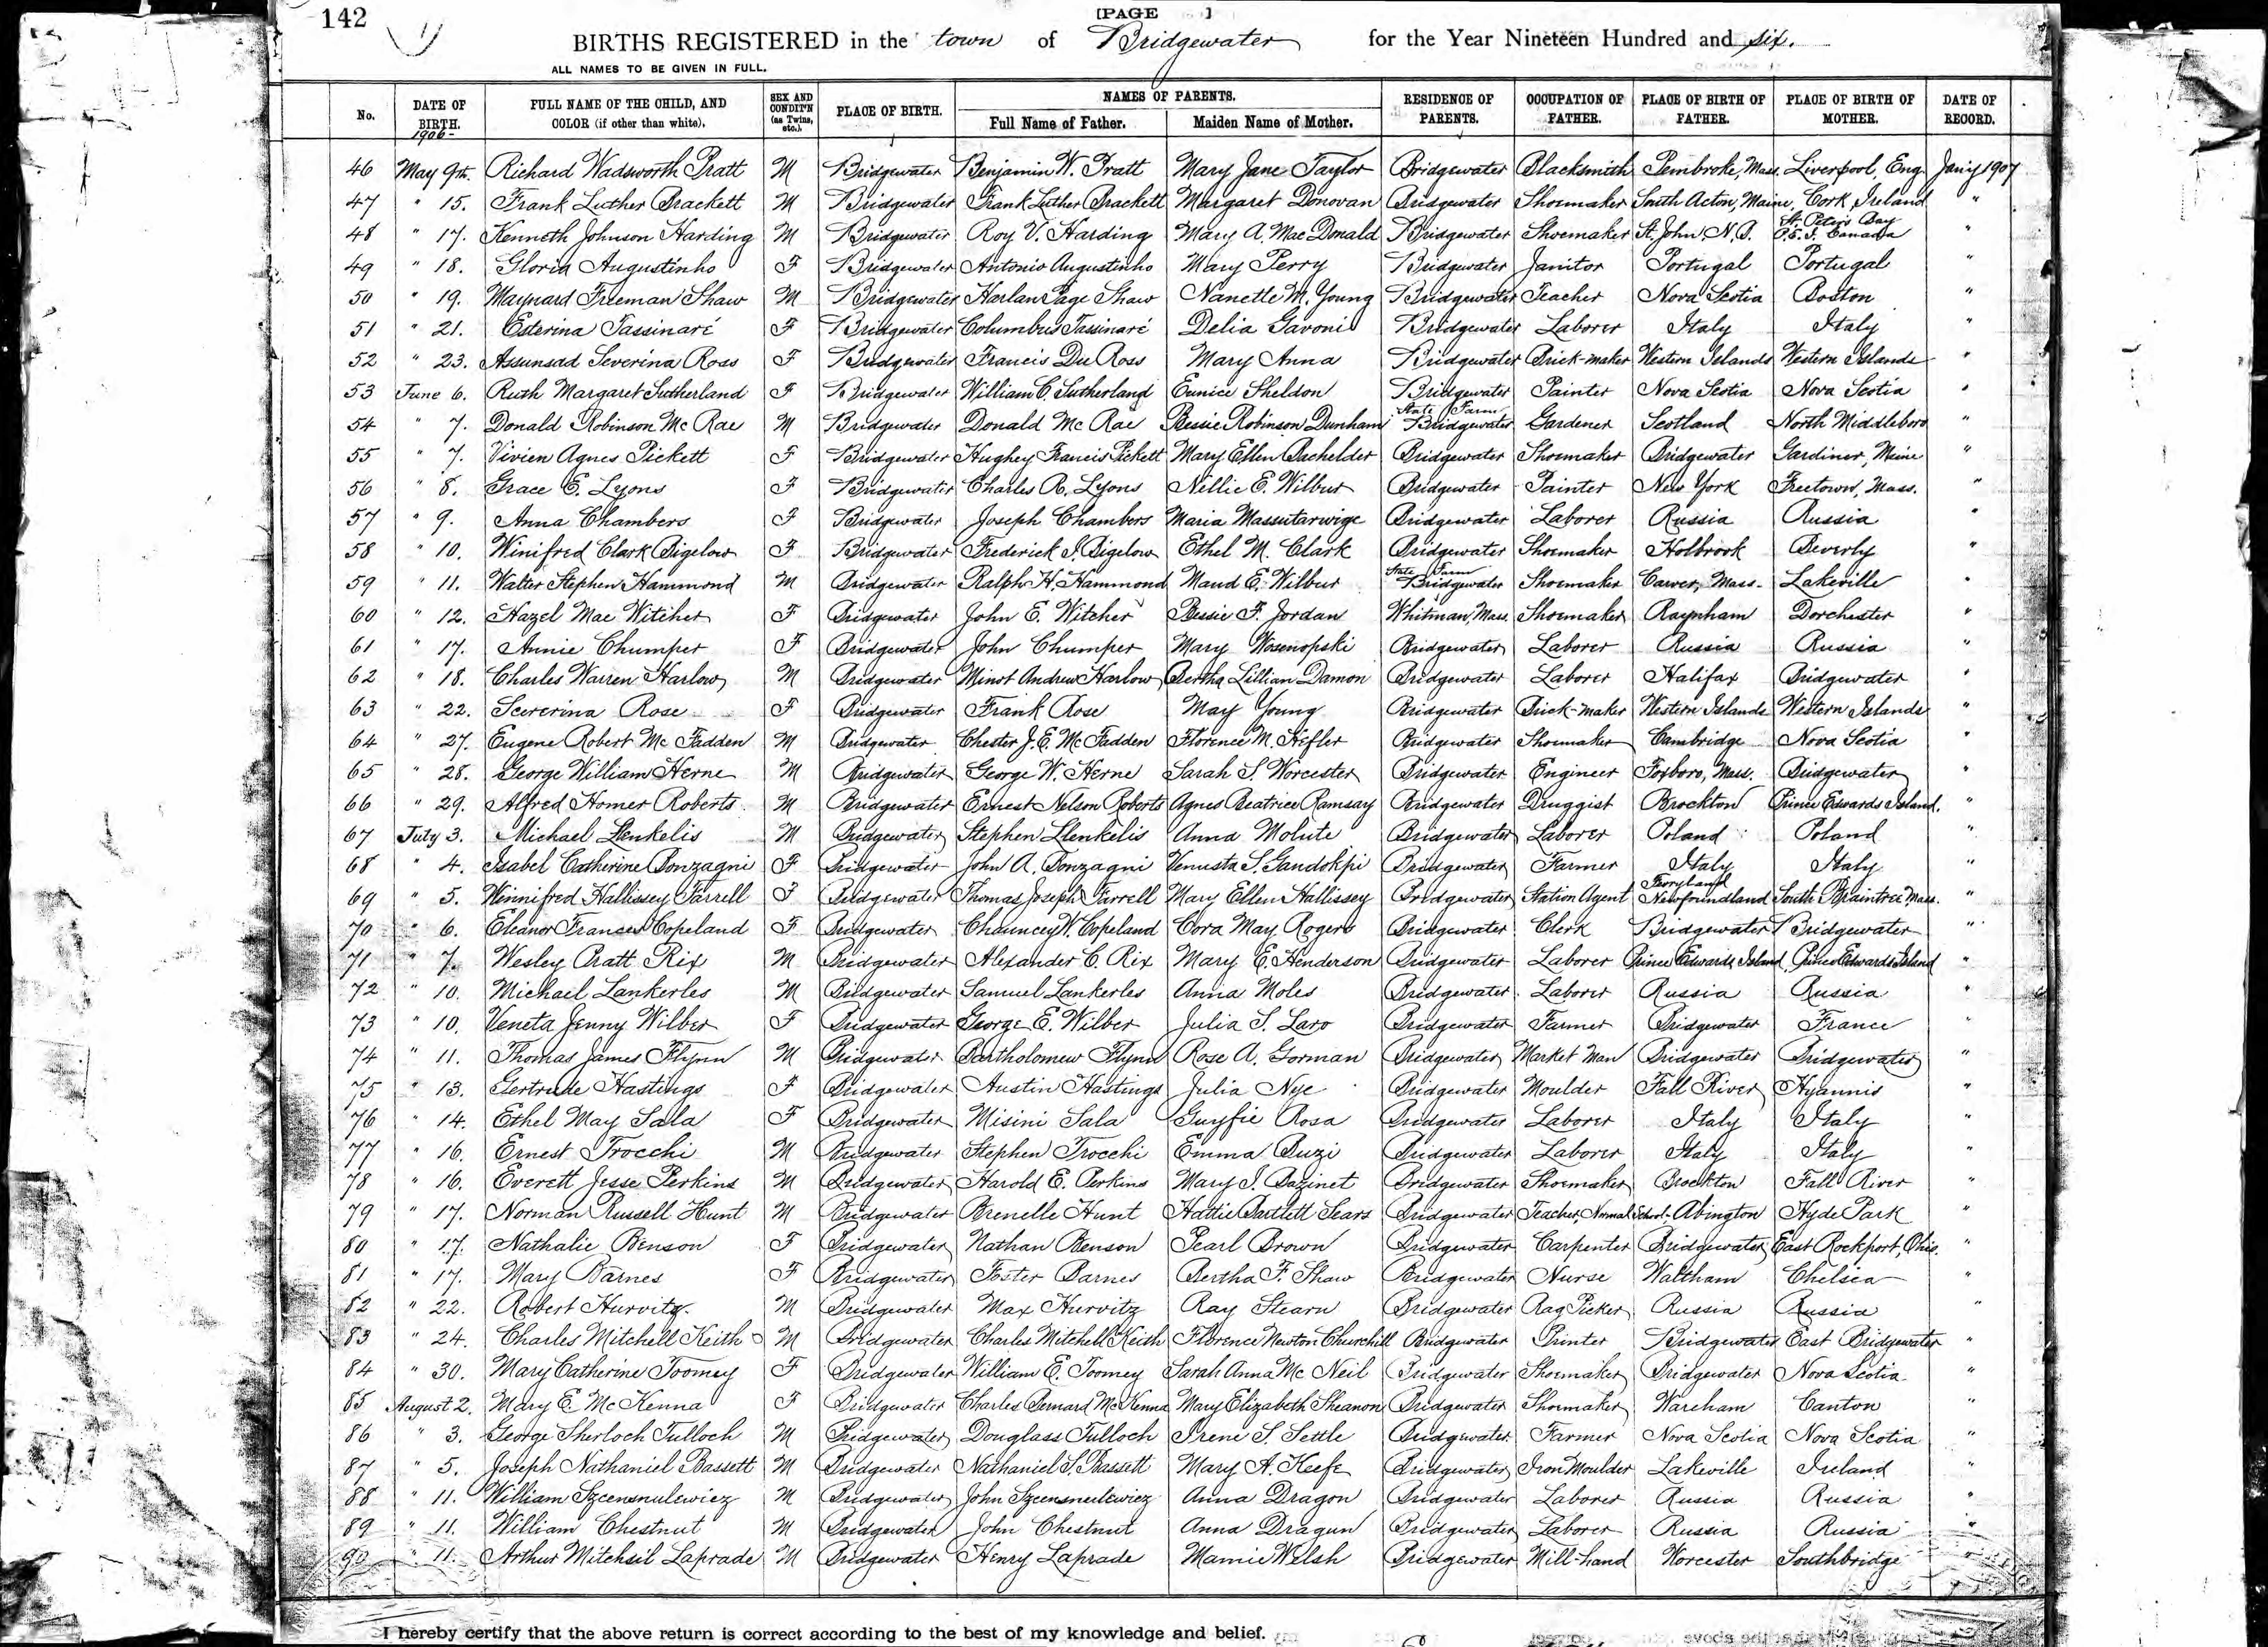 142
[PAGE ]
BIRTHS REGISTERED in the town of Bridgewater for the Year Nineteen Hundred and six.
ALL NAMES TO BE GIVEN IN FULL.
No. DATE OF BIRTH. FULL NAME OF THE CHILD, AND COLOR (if other than white). SEX AND CONDIT'N (as Twins, etc.). PLACE OF BIRTH. NAMES OF PARENTS. Full Name of Father. Maiden Name of Mother. RESIDENCE OF PARENTS. OCCUPATION OF FATHER. PLACE OF BIRTH OF FATHER. PLACE OF BIRTH OF MOTHER. DATE OF RECORD.
1906-
46 May 9th. Richard Wadsworth Pratt M Bridgewater Benjamin W. Pratt Mary Jane Taylor Bridgewater Blacksmith Pembroke, Mass. Liverpool, Eng. Jan'y 1907
47 " 15. Frank Luther Brackett M Bridgewater Frank Luther Brackett Margaret Donovan Bridgewater Shoemaker South Acton, Maine, Cork, Ireland "
48 " 17. Kenneth Johnson Harding M Bridgewater Roy V. Harding Mary A. Mac Donald Bridgewater Shoemaker St. John, N. B. St. Peter's Bay P. E. I. Canada "
49 " 18. Gloria Augustinho F Bridgewater Antonio Augustinho Mary Perry Bridgewater Janitor Portugal Portugal "
50 " 19. Maynard Freeman Shaw M Bridgewater Harlan Page Shaw Nanette M. Young Bridgewater Teacher Nova Scotia Boston "
51 " 21. Esterina Tassinaré F Bridgewater Columbus Tassinaré Delia Gavoni Bridgewater Laborer Italy Italy "
52 " 23. Assunsad Severina Ross F Bridgewater Francis Du Ross Mary Anna Bridgewater Brick-maker Western Islands Western Islands "
53 June 6. Ruth Margaret Sutherland F Bridgewater William C. Sutherland Eunice Sheldon Bridgewater Painter Nova Scotia Nova Scotia "
54 " 7. Donald Robinson Mc Rae M Bridgewater Donald Mc Rae Bessie Robinson Dunham State Farm Bridgewater Gardener Scotland North Middleboro "
55 " 7. Vivien Agnes Pickett F Bridgewater Hughey Francis Pickett Mary Ellen Bachelder Bridgewater Shoemaker Bridgewater Gardiner, Maine "
56 " 8. Grace E. Lyons F Bridgewater Charles R. Lyons Nellie E. Wilbur Bridgewater Painter New York Freetown, Mass. "
57 " 9. Anna Chambers F Bridgewater Joseph Chambers Maria Massutarwige Bridgewater Laborer Russia Russia "
58 " 10. Winifred Clark Bigelow F Bridgewater Frederick S. Bigelow Ethel M. Clark Bridgewater Shoemaker Holbrook Beverly "
59 " 11. Walter Stephen Hammond M Bridgewater Ralph H. Hammond Maud E. Wilbur State Farm Bridgewater Shoemaker Carver, Mass. Lakeville "
60 " 12. Hazel Mae Witcher F Bridgewater John E. Witcher Bessie F. Jordan Whitman, Mass. Shoemaker Raynham Dorchester "
61 " 17. Annie Chumper F Bridgewater John Chumper Mary Wosenopski Bridgewater Laborer Russia Russia "
62 " 18. Charles Warren Harlow M Bridgewater Minot Andrew Harlow Bertha Lillian Damon Bridgewater Laborer Halifax Bridgewater "
63 " 22. Scererina Rose F Bridgewater Frank Rose May Young Bridgewater Brick-maker Western Islands Western Islands "
64 " 27. Eugene Robert Mc Fadden M Bridgewater Chester J. E. Mc Fadden Florence M. Hefler Bridgewater Shoemaker Cambridge Nova Scotia "
65 " 28. George William Herne M Bridgewater George W. Herne Sarah S. Worcester Bridgewater Engineer Foxboro, Mass. Bridgewater "
66 " 29. Alfred Homer Roberts M Bridgewater Ernest Nelson Roberts Agnes Beatrice Ramsay Bridgewater Druggist Brockton Prince Edwards Island. "
67 July 3. Michael Llenkelis M Bridgewater Stephen Llenkelis Anna Molute Bridgewater Laborer Poland Poland "
68 " 4. Isabel Catherine Bonzagni F Bridgewater John A. Bonzagni Venusta S. Gandolfi Bridgewater Farmer Italy Italy "
69 " 5. Winnifred Hallissey Farrell F Bridgewater Thomas Joseph Farrell Mary Ellen Hallissey Bridgewater Station Agent Ferryland Newfoundland South Braintree Mass. "
70 " 6. Eleanor Frances Copeland F Bridgewater Chauncey W. Copeland Cora May Rogers Bridgewater Clerk Bridgewater Bridgewater "
71 " 7. Wesley Pratt Rix M Bridgewater Alexander C. Rix Mary E. Henderson Bridgewater Laborer Prince Edwards Island Prince Edwards Island "
72 " 10. Michail Lankerles M Bridgewater Samuel Lankerles Anna Moles Bridgewater Laborer Russia Russia "
73 " 10. Veneta Jenny Wilber F Bridgewater George E. Wilber Julia S. Laro Bridgewater Farmer Bridgewater France "
74 " 11. Thomas James Flynn M Bridgewater Bartholomew Flynn Rose A. Gorman Bridgewater Market Man Bridgewater Bridgewater "
75 " 13. Gertrude Hastings F Bridgewater Austin Hastings Julia Nye Bridgewater Moulder Fall River Hyannis "
76 " 14. Ethel May Sala F Bridgewater Misini Sala Guyfie Rosa Bridgewater Laborer Italy Italy "
77 " 16. Ernest Trocchi M Bridgewater Stephen Trocchi Emma Buzi Bridgewater Laborer Italy Italy "
78 " 16. Everett Jesse Perkins M Bridgewater Harold E. Perkins Mary I. Bazinet Bridgewater Shoemaker Brockton Fall River "
79 " 17. Norman Russell Hunt M Bridgewater Brenelle Hunt Hattie Bartlett Sears Bridgewater Teacher, Normal School. Abington Hyde Park "
80 " 17. Nathalie Benson F Bridgewater Nathan Benson Pearl Brown Bridgewater Carpenter Bridgewater East Rockport, Ohio. "
81 " 17. Mary Barnes F Bridgewater Foster Barnes Bertha F. Shaw Bridgewater Nurse Waltham Chelsea "
82 " 22. Robert Hurvitz. M Bridgewater Max Hurvitz Ray Stearn Bridgewater Rag Picker Russia Russia "
83 " 24. Charles Mitchell Keith M Bridgewater Charles Mitchell Keith Florence Newton Churchill Bridgewater Printer Bridgewater East Bridgewater "
84 " 30. Mary Catherine Toomey F Bridgewater William E. Toomey Sarah Anna Mc Neil Bridgewater Shoemaker Bridgewater Nova Scotia "
85 August 2. Mary E. Mc Kenna F Bridgewater Charles Bernard Mc Kenna Mary Elizabeth Sheanon Bridgewater Shoemaker Wareham Canton "
86 " 3. George Sherloch Tulloch M Bridgewater Douglass Tulloch Irene S. Settle Bridgewater Farmer Nova Scotia Nova Scotia "
87 " 5. Joseph Nathaniel Bassett M Bridgewater Nathaniel S. Bassett Mary A. Keefe Bridgewater Iron Moulder Lakeville Ireland "
88 " 11. William Szcensnulewicz M Bridgewater John Szcensnulewicz Anna Dragon Bridgewater Laborer Russia Russia "
89 " 11. William Chestnut M Bridgewater John Chestnut Anna Dragun Bridgewater Laborer Russia Russia "
90 " 11. Arthur Mitchsil Laprade M Bridgewater Henry Laprade Mamie Welsh Bridgewater Mill-hand Worcester Southbridge "
I hereby certify that the above return is correct according to the best of my knowledge and belief.